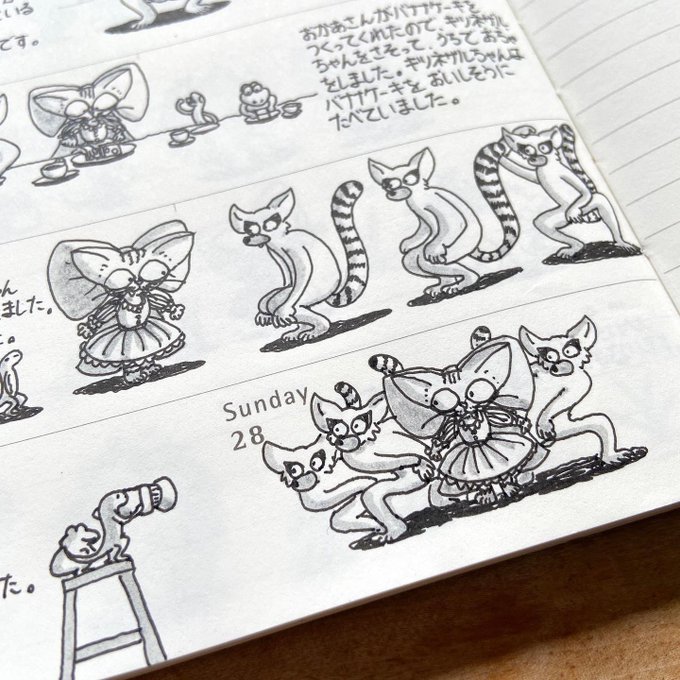 ている
です。
おかあさんがバナナケーキを
つくってくれたので、キツネザル
ちゃんをさそって、うちでおちゃ
をしました。キツネザルちゃんは
バナナケーキを おいしそうに
たべていました。
ん
ました。
た。
Sunday
28
た。